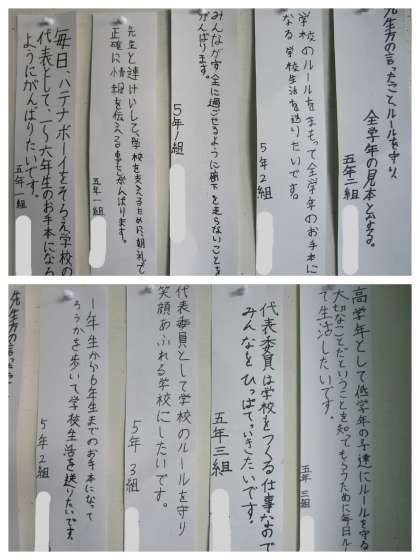 先生方の言ったことルールを守り、
全学年の見本となる。
五年二組
学校のルールをまもって全学年のお手本に
なる学校生活を送りたいです。
5年2組
みんなが安全に過ごせるように廊下を走らないことを
がんばります。
5年1組
先生と連けいして、学校を支えるために、朝礼で
正確に情報を伝える事をがんばります。
五年一組
毎日、ハテナボーイをそろえ学校の
代表として、一~六年生のお手本になる
ようにがんばりたいです。
五年一組
高学年として低学年の子達にルールを守る
大切なことだということを知ってもらうために毎日ル
て生活したいです。
五年三組
代表委員は学校をつくる仕事なので
みんなをひっぱっていきたいです。
五年三組
代表委員として学校のルールを守り
笑顔あふれる学校にしたいです。
5年3組
1年生から6年生までのお手本になって
ろうかを歩いて学校生活を送りたいです。
5年2組
先生方の言ったこ